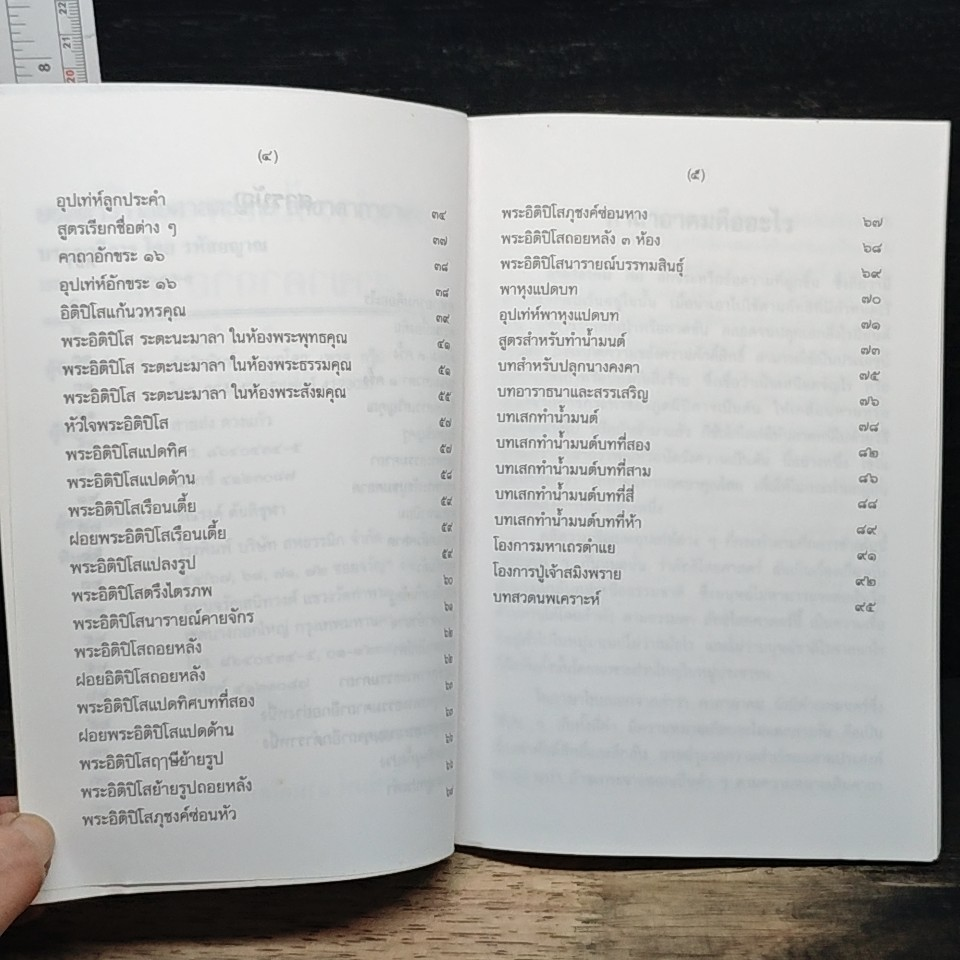 (๔)
อุปเท่ห์ลูกประคำ ๓๔
สูตรเรียกชื่อต่าง ๆ ๓๗
คาถาอักขระ ๑๖ ๓๘
อุปเท่ห์อักขระ ๑๖ ๓๘
อิติปิโสแก้นวหรคุณ ๓๙
พระอิติปิโส ระตะนะมาลา ในห้องพระพุทธคุณ ๔๑
พระอิติปิโส ระตะนะมาลา ในห้องพระธรรมคุณ ๕๑
พระอิติปิโส ระตะนะมาลา ในห้องพระสังฆคุณ ๕๕
หัวใจพระอิติปิโส ๕๗
พระอิติปิโสแปดทิศ ๕๗
พระอิติปิโสแปดด้าน ๕๘
พระอิติปิโสเรือนเตี้ย
ฝอยพระอิติปิโสเรือนเตี้ย
พระอิติปิโสแปลงรูป
พระอิติปิโสตรึงไตรภพ ๖๐
พระอิติปิโสนารายณ์คายจักร
พระอิติปิโสถอยหลัง
ฝอยอิติปิโสถอยหลัง
พระอิติปิโสแปดทิศบทที่สอง
ฝอยพระอิติปิโสแปดด้าน
พระอิติปิโสฤๅษีย้ายรูป
พระอิติปิโสย้ายรูปถอยหลัง
พระอิติปิโสภุชงค์ซ่อนหัว
(๕)
พระอิติปิโสภุชงค์ซ่อนหาง ๖๗
พระอิติปิโสถอยหลัง ๓ ห้อง ๖๘
พระอิติปิโสนารายณ์บรรทมสินธุ์ ๖๙
พาหุงแปดบท ๗๐
อุปเท่ห์พาหุงแปดบท ๗๑
สูตรสำหรับทำน้ำมนต์ ๗๓
บทสำหรับปลุกนางคงคา ๗๕
บทอาราธนาและสรรเสริญ ๗๖
บทเสกทำน้ำมนต์ ๗๘
บทเสกทำน้ำมนต์บทที่สอง ๘๒
บทเสกทำน้ำมนต์บทที่สาม ๘๖
บทเสกทำน้ำมนต์บทที่สี่ ๘๘
บทเสกทำน้ำมนต์บทที่ห้า ๘๙
โองการมหาเถรตำแย ๙๑
โองการปู่เจ้าสมิงพราย ๙๒
บทสวดนพเคราะห์ ๙๕
8
20
21
22